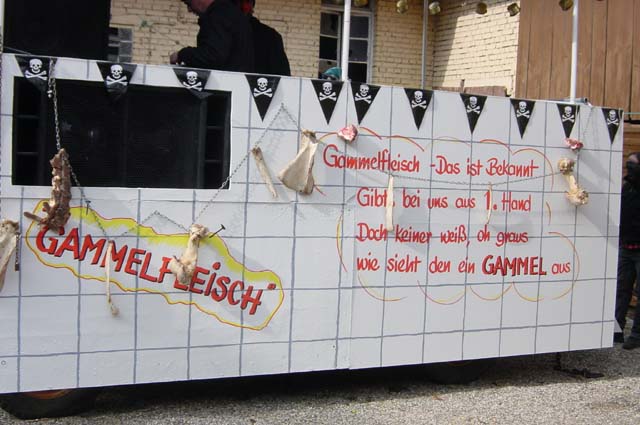 GAMMELFLEISCH
Gammelfleisch - Das ist Bekannt
Gibt, bei uns aus 1. Hand
Doch keiner weiß, oh graus
wie sieht den ein GAMMEL aus